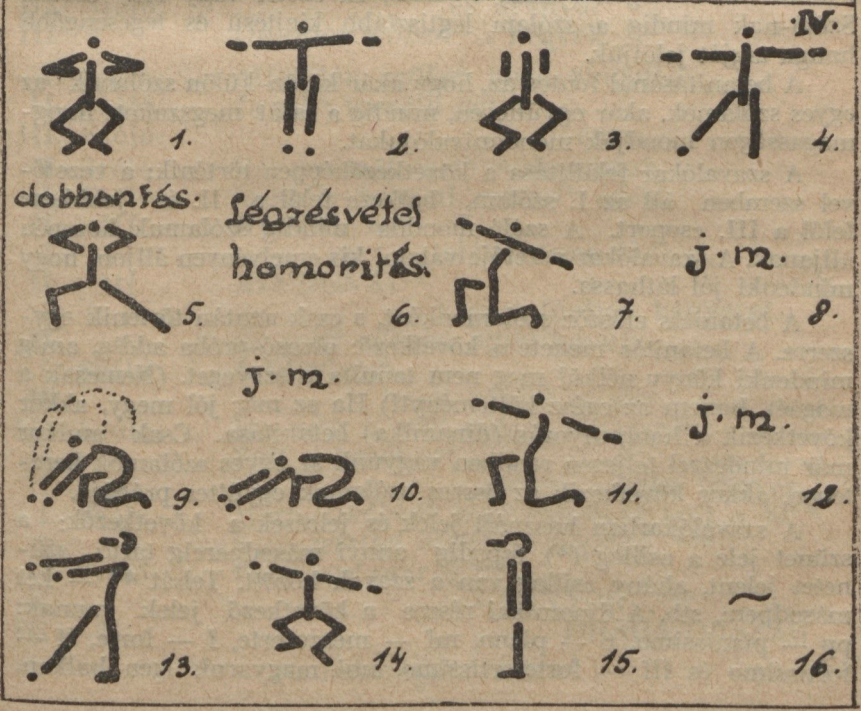 IV.
1. 2. 3. 4.
dobbantás. légzésvétel
homorítás.
j. m.
5. 6. 7. 8.
j. m.
j. m.
9. 10. 11. 12.
~
13. 14. 15. 16.